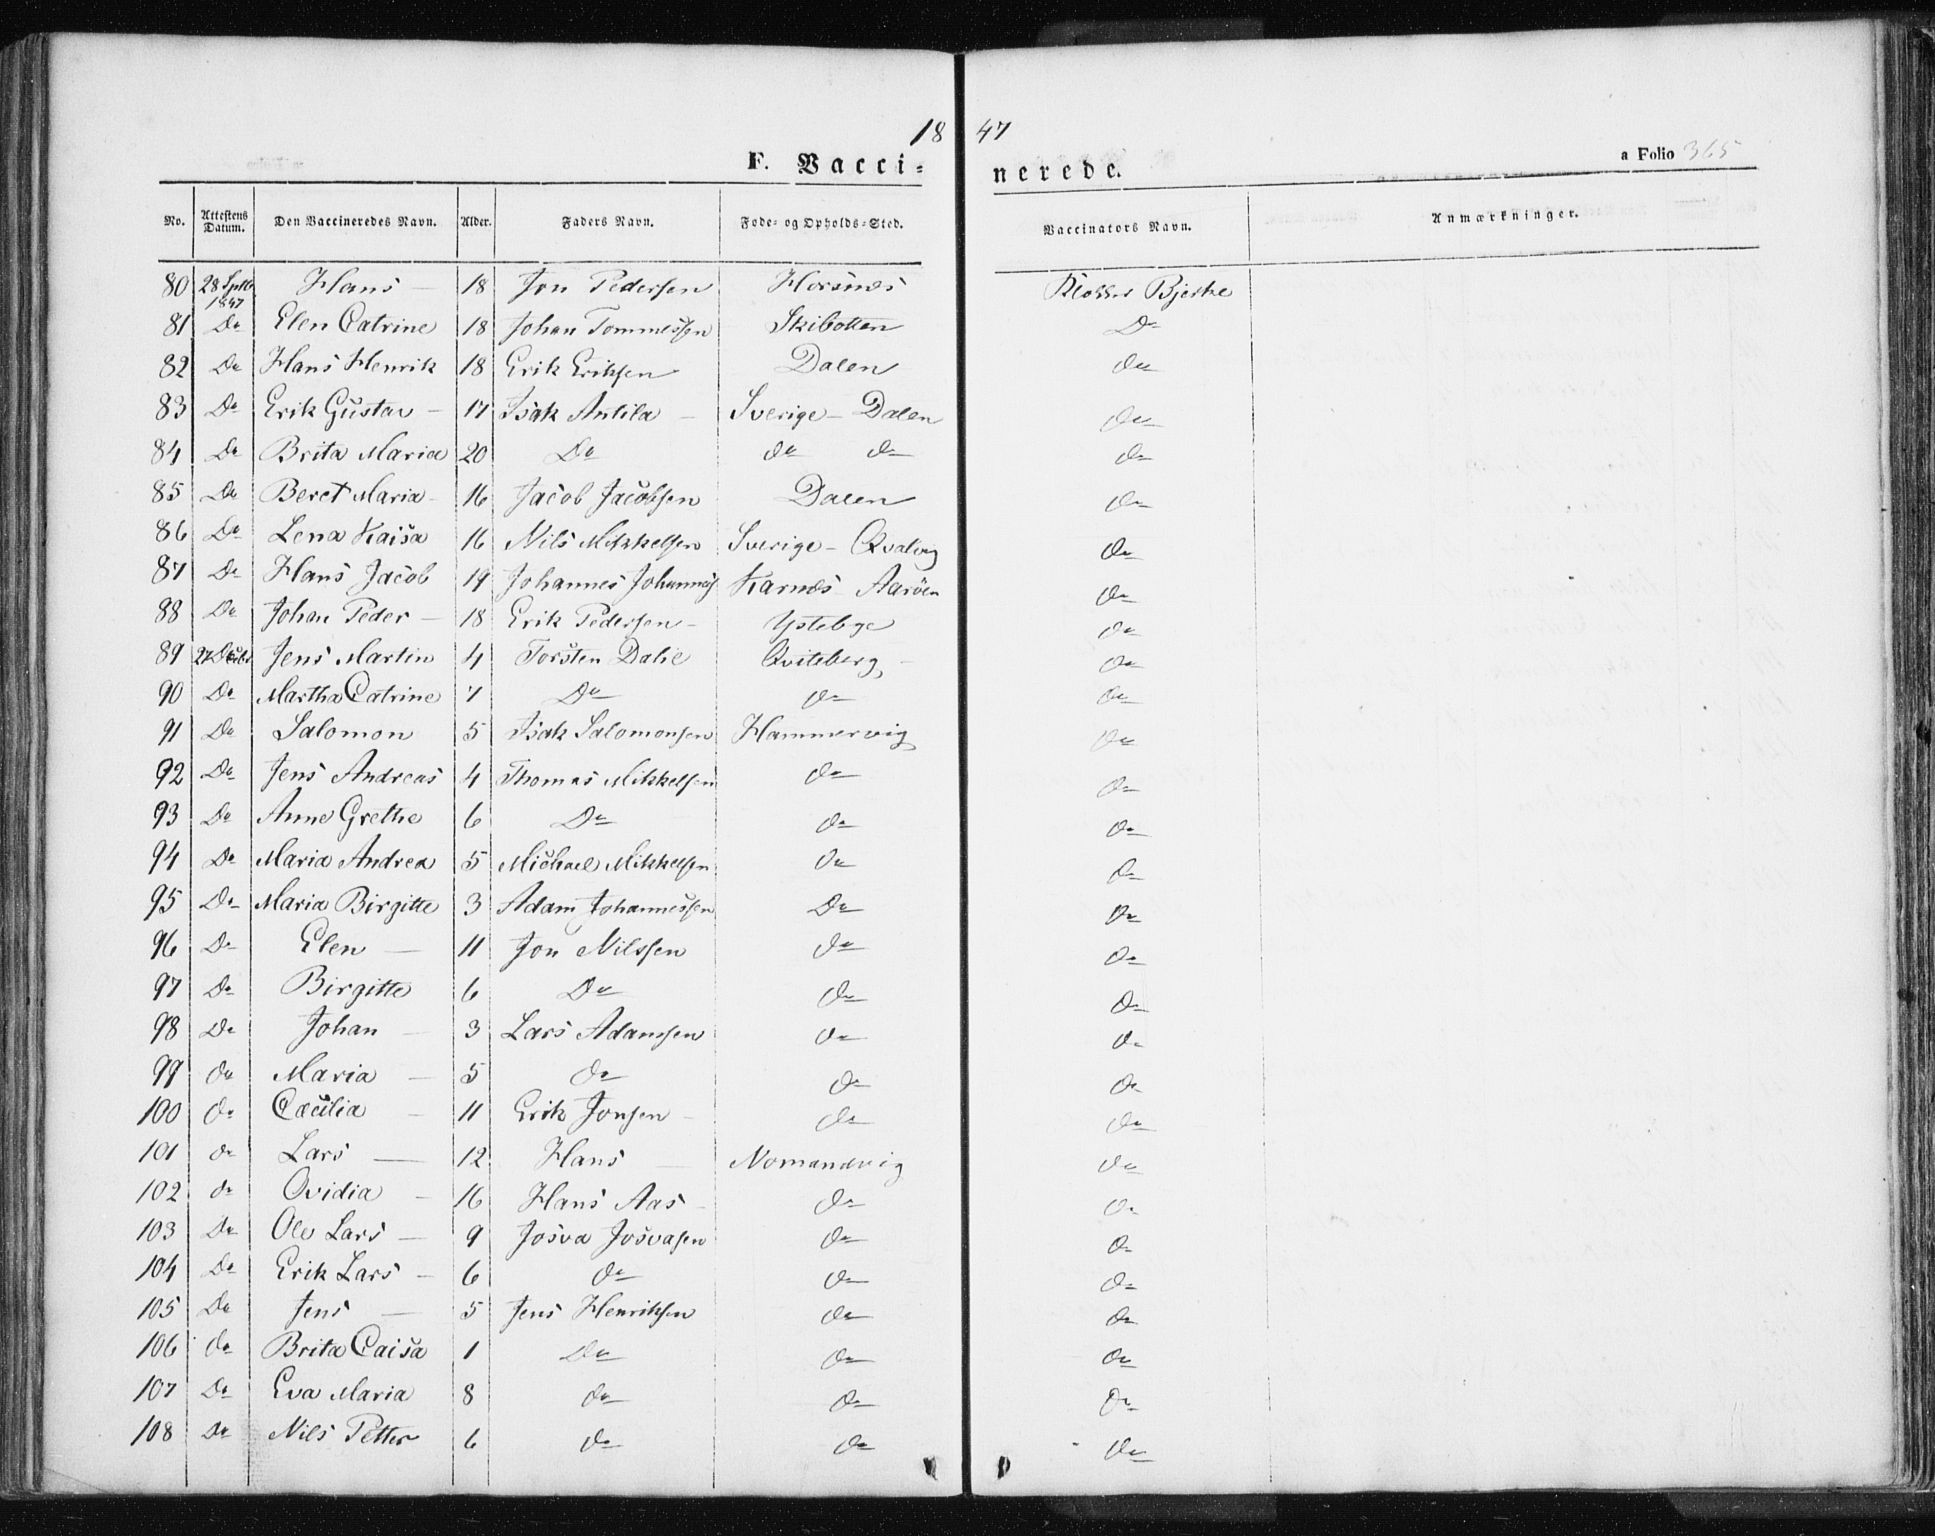 1847
F. Vaccinerede.
a Folio 365
No. Attestens Datum. Den Vaccineredes Navn. Alder. Faders Navn. Føde- og Opholds-Sted. Vaccinators Navn. Anmærkninger.
80 28 Septb 1847 Hans — 18 Jon Pedersen Horsnæs Klokker Bjerke
81 Do Elen Catrine 18 Johan Tommessen Skibotten Do
82 Do Hans Henrik 18 Erik Eriksen Dalen do
83 Do Erik Gustav — 17 Isak Antila — Sverige — Dalen do
84 Do Brita Maria 20 Do do do do
85 Do Beret Maria 16 Jacob Jacobsen Dalen do
86 Do Lena Kaisa 16 Nils Mikkelsen Sverige — Qvalvig do
87 Do Hans Jacob 19 Johannes Johannes Karnæs Aarøen do
88 Do Johan Peder — 18 Erik Pedersen — Ystebye do
89 27 Decbr Jens Martin 4 Torsten Dalie Qviteberg — do
90 Do Martha Catrine 7 Do do do
91 Do Salomon 5 Isak Salomonsen Hammervig do
92 Do Jens Andreas 4 Thomas Mikkelsen do do
93 Do Anne Grethe 6 Do do do
94 Do Maria Andrea 5 Michael Mikkelsen do do
95 Do Maria Birgitte 3 Adam Johannessen Do do
96 Do Elen — 11 Jon Nilssen do do
97 Do Birgitte 6 Do do do
98 Do Johan — 3 Lars Adamsen do do
99 do Maria — 5 do do do
100 do Cæcilia — 11 Erik Jonsen — do do
101 do Lars — 12 Hans — Nomandvig do
102 do Ovidia — 16 Hans Aas — do do
103 Do Ole Lars — 9 Josva Josvasen do do
104 Do Erik Lars — 6 do do do
105 Do Jens — 5 Jens Henriksen do do
106 do Brita Caisa 1 Do do do
107 Do Eva Maria 8 do do do
108 Do Nils Petter 6 do do do